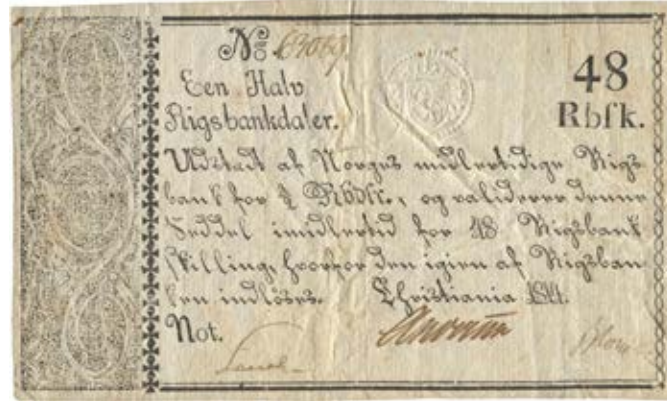 No
Een Halv
Rigsbankdaler.
48
Rbſk.
Udstedt af Norges midlertidige Rigs-
bank for ½ Rbdlr., og validerer denne
Seddel imidlertid for 48 Rigsbank
ſkilling, hvorfor den igien af Rigsban-
ken indlöses. Christiania 1814.
Not.